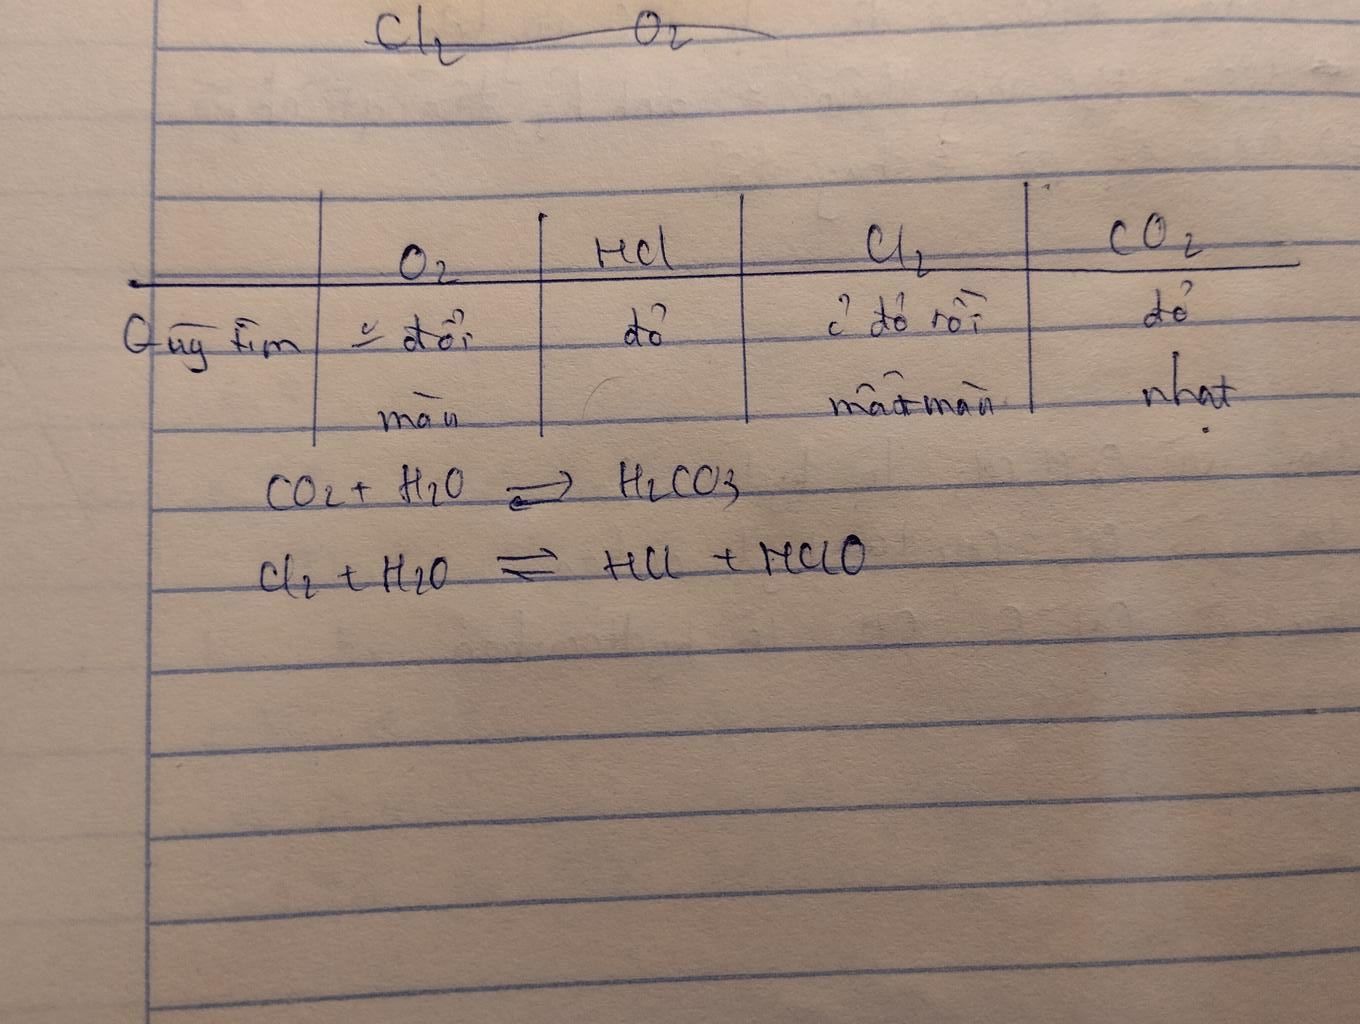 Cl2 O2
O2 HCl Cl2 CO2
Qùy tím đổi đỏ đỏ rồi đỏ
màu mất màu nhạt
CO2 + H2O ⇌ H2CO3
Cl2 + H2O ⇌ HCl + HClO